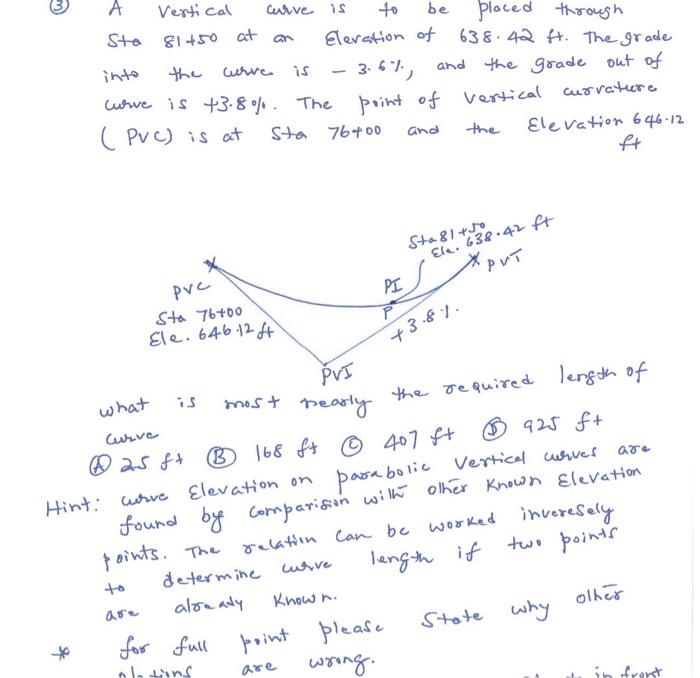 ③ A Vertical curve is to be placed through
Sta 81+50 at an Elevation of 638.42 ft. The grade
into the curve is - 3.6%, and the grade out of
curve is +3.8%. The point of vertical curvature
(PVC) is at Sta 76+00 and the Elevation 646.12
ft
Sta 81+50
Ele. 638.42 ft
PVT
PVC
PI
P
Sta 76+00
+3.8%.
Ele. 646.12 ft
PVI
what is most nearly the required length of
curve
Ⓐ 25 ft Ⓑ 168 ft Ⓒ 407 ft Ⓓ 925 ft
Hint: curve Elevation on parabolic Vertical curves are
found by comparision with other Known Elevation
points. The relation can be worked inveresely
to determine curve length if two points
are already Known.
* for full point please State why other
are wrong.
in front